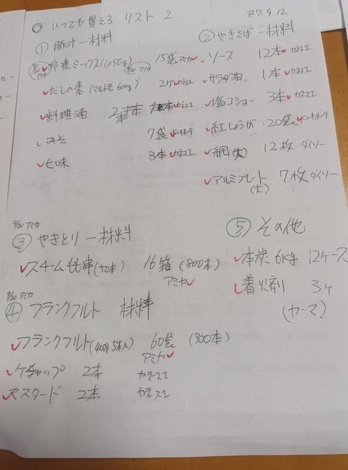 いつでも買える リスト 2
R7.9.12
① 豚汁ー材料
冷凍ミックス(1,050g) 15袋 アミカ
だしの素
料理酒 2本
みそ 7袋
七味 3本 カネスエ
② やきそばー材料
ソース 12本 カネスエ
サラダ油 1本 カネスエ
塩コショー 3本 カネスエ
紅しょうが 20袋
網(大) 12枚 ダイソー
アルミプレート(大) 7枚 ダイソー
9/20 アミカ
③ やきとりー材料
スチームもも串(50本) 16箱 (800本)
アミカ
9/20 アミカ
④ フランクフルト 材料
フランクフルト(400g 5本入) 60袋 (300本)
アミカ
ケチャップ 2本 カネスエ
マスタード 2本 カネスエ
⑤ その他
木炭 6kg 12ケース
着火剤 3ケ
(カーマ)